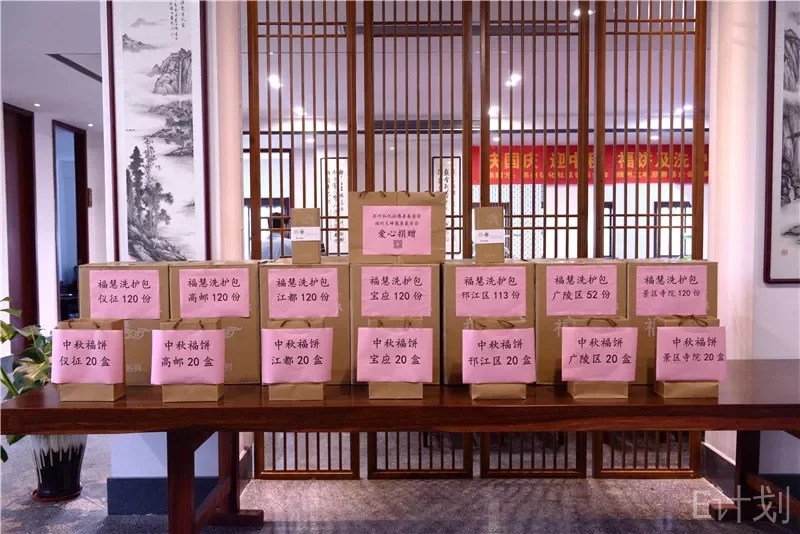 庆国庆 迎中秋 福慧及洗护
苏州弘化社慈善基金会
扬州文峰慈善基金会
爱心捐赠
福慧洗护包
仪征 120 份
福慧洗护包
高邮 120 份
福慧洗护包
江都 120 份
福慧洗护包
宝应 120 份
福慧洗护包
邗江区 113 份
福慧洗护包
广陵区 52 份
福慧洗护包
景区寺院 120 份
中秋福饼
仪征 20 盒
中秋福饼
高邮 20 盒
中秋福饼
江都 20 盒
中秋福饼
宝应 20 盒
中秋福饼
邗江区 20 盒
中秋福饼
广陵区 20 盒
中秋福饼
景区寺院 20 盒
E计划